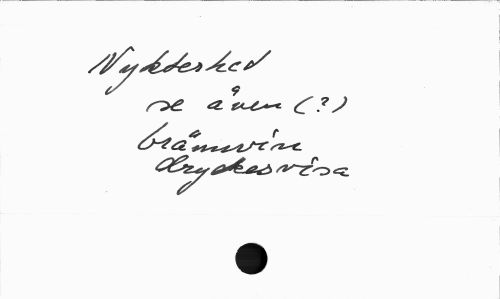 Nykterhed
se även (?)
brännvin
dryckesvisa